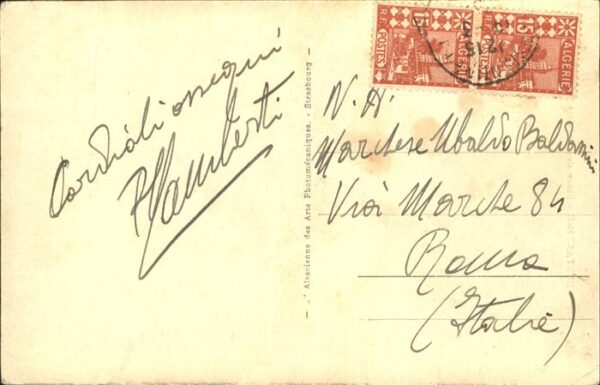 Cordiali ossequi
Lamberti
Alsacienne des Arts Photomécaniques. - Strasbourg -
15
R.F. POSTES
ALGERIE
15
ALGERIE
12 15
N. H.
Marchese Ubaldo Baldassini
Via Marche 84
Roma
(Italie)